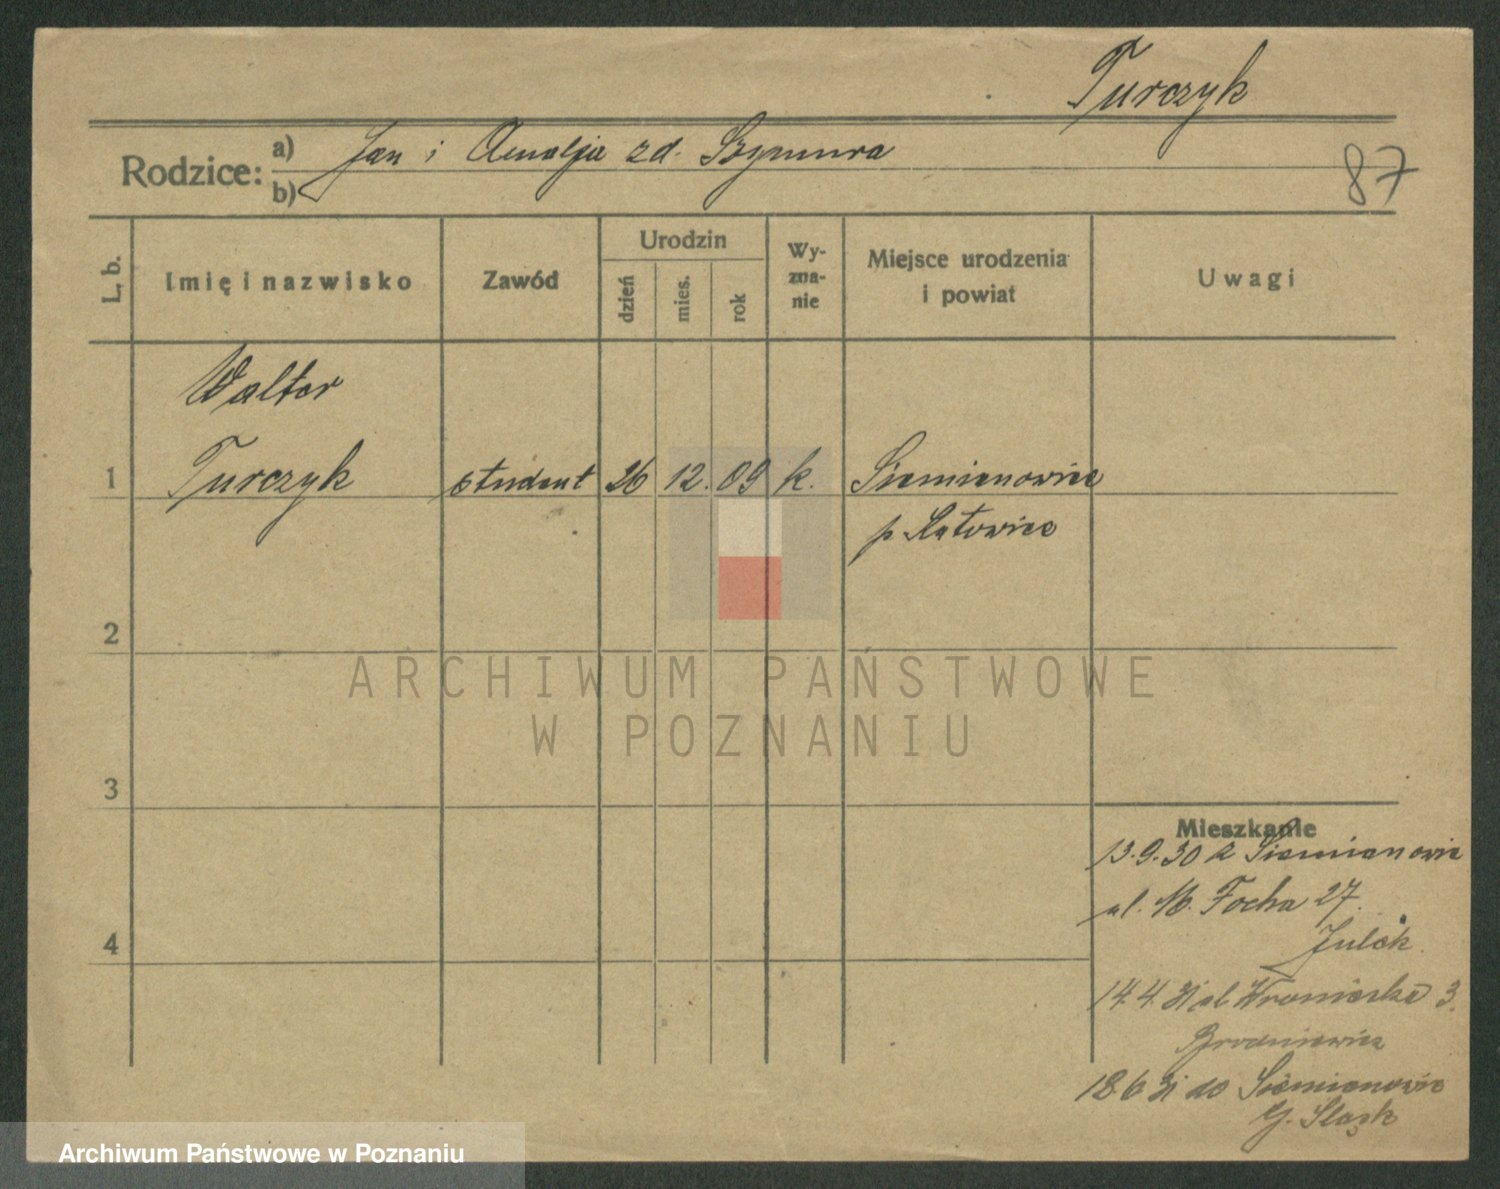 Turczyk
Rodzice: a) Jan i Amalja zd. Szymura
b)
87
L. b.
Imię i nazwisko
Zawód
Urodzin
dzień
mies.
rok
Wy-
zna-
nie
Miejsce urodzenia
i powiat
Uwagi
Walter
1 Turczyk student 26 12. 09 k. Siemianowice
p. Katowice
2
3
4
ARCHIWUM PAŃSTWOWE
W POZNANIU
Mieszkanie
13.9.30 z Siemianowic
ul. M. Focha 27.
14.4.31 ul. Wroniecka 3.
18.6.31 do Siemianowic
G. Śląsk
Archiwum Państwowe w Poznaniu